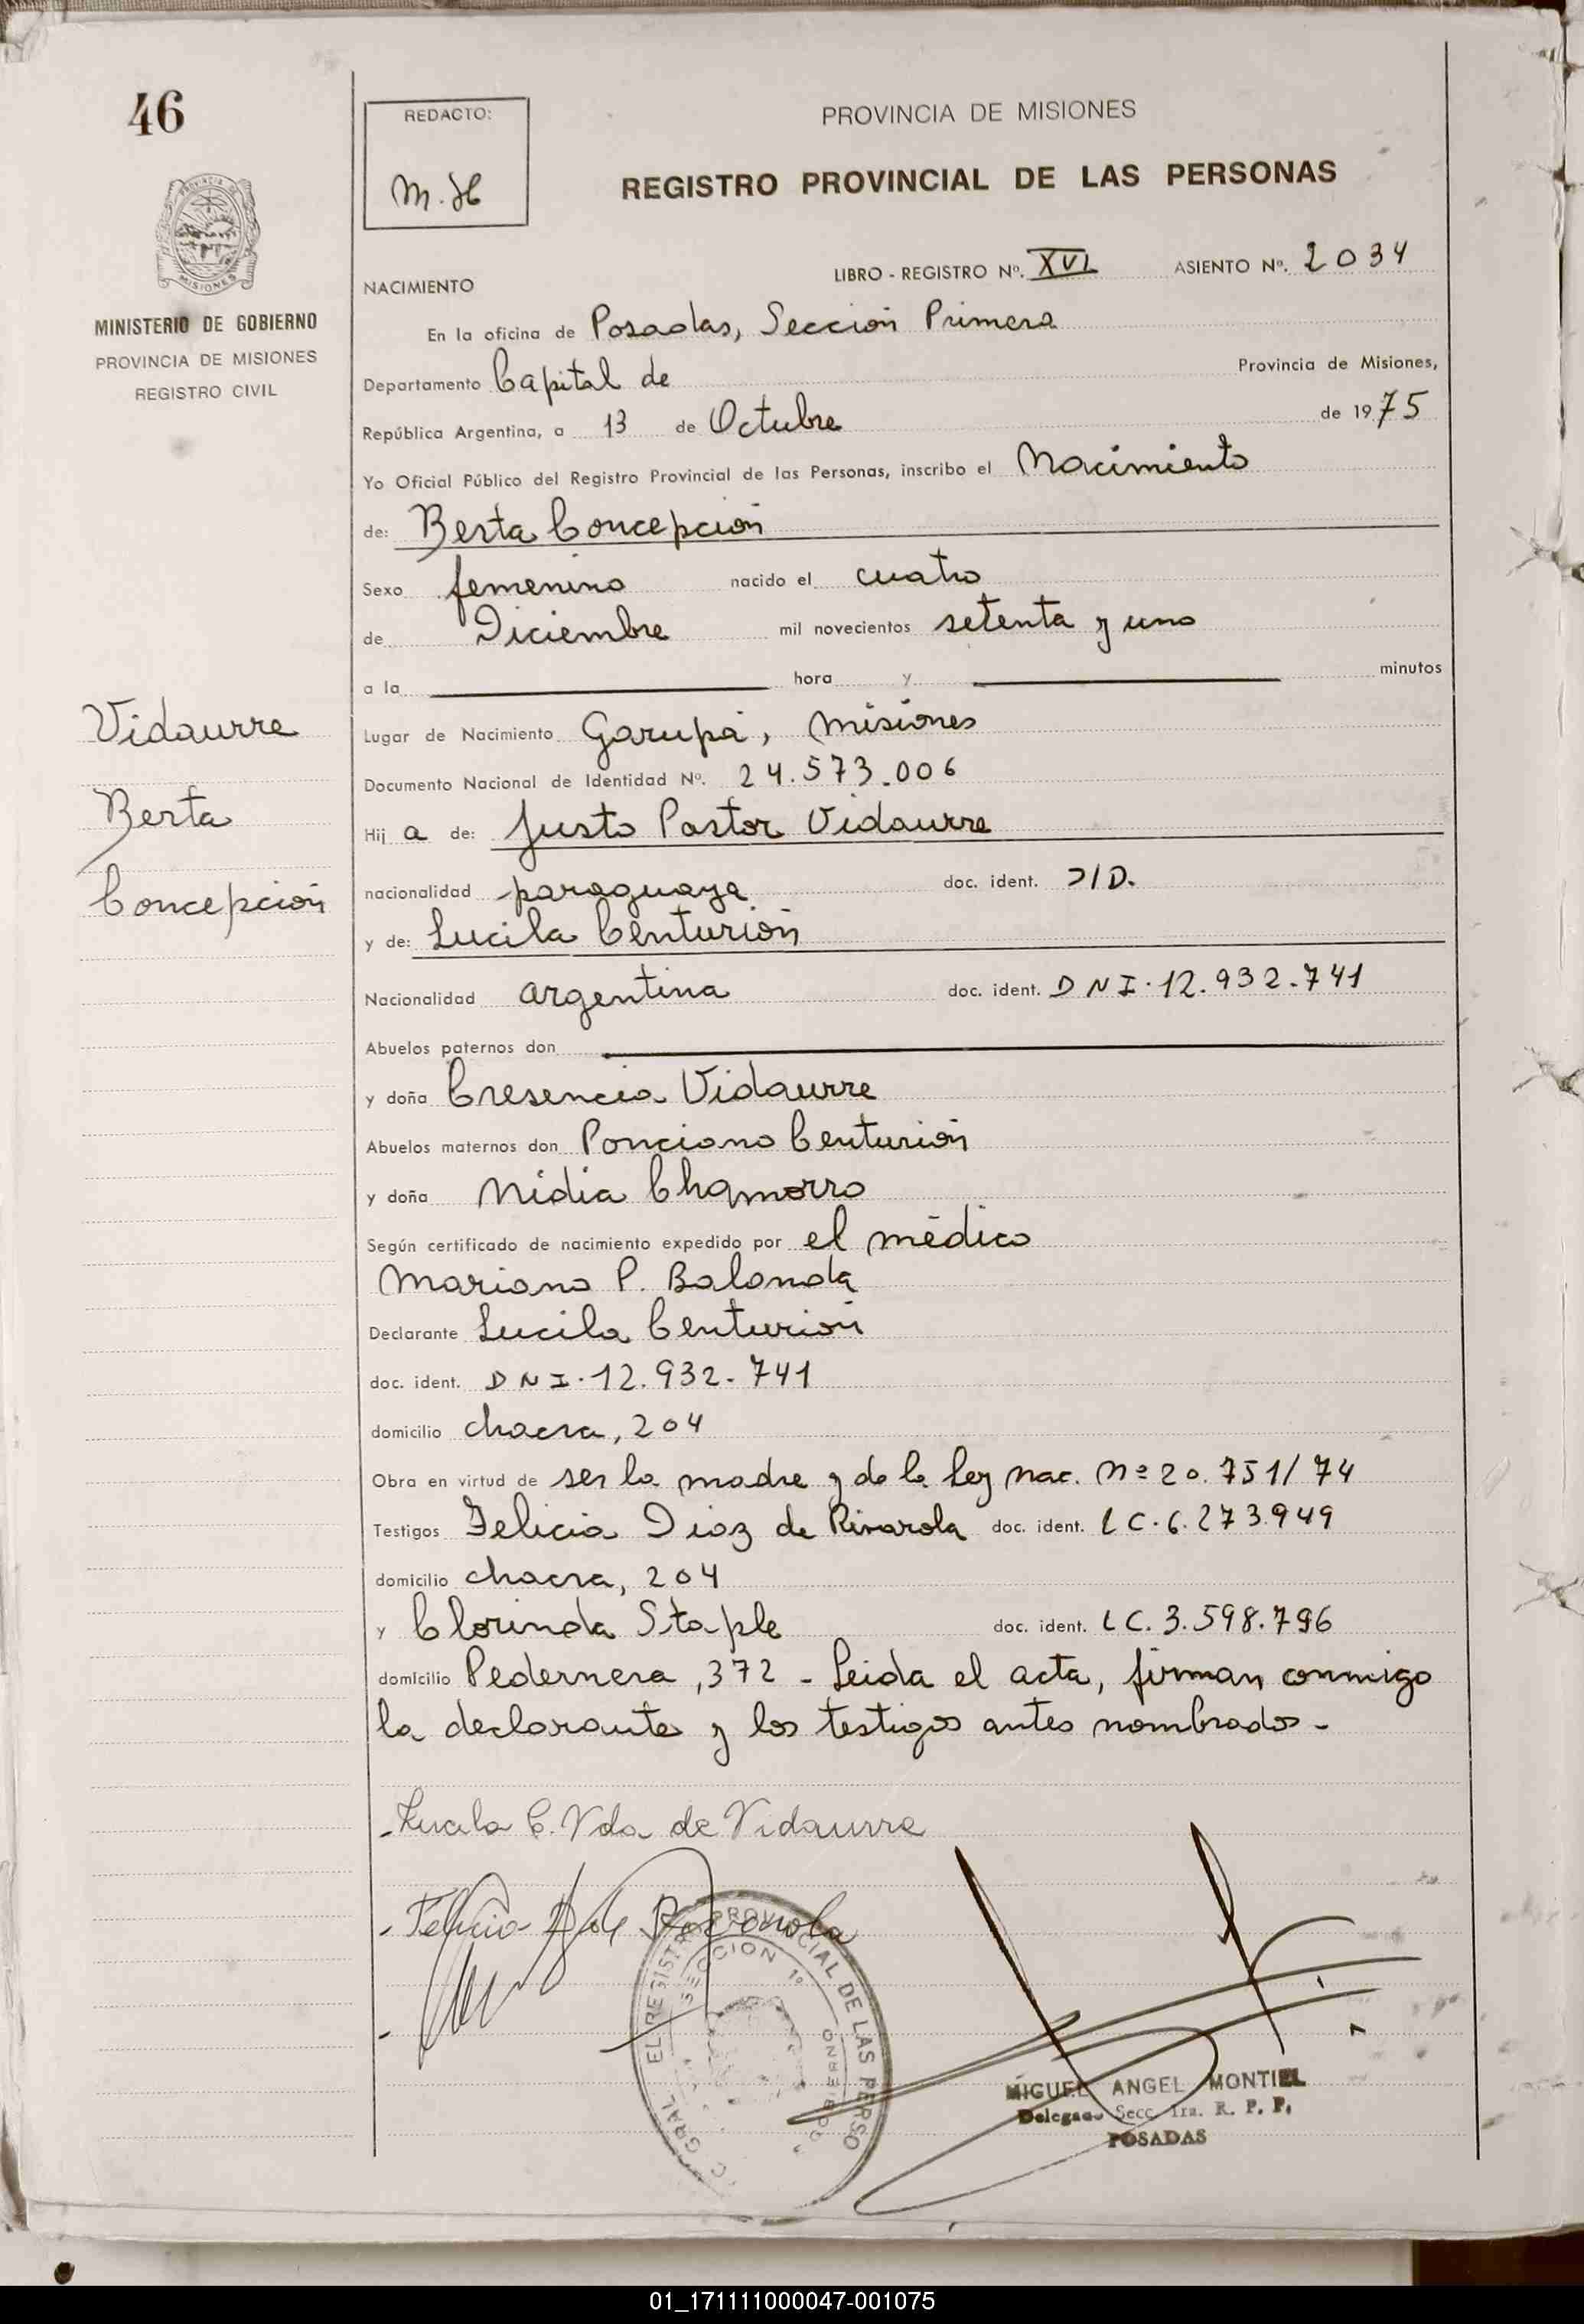 46
REDACTO:
M. H
PROVINCIA DE MISIONES
REGISTRO PROVINCIAL DE LAS PERSONAS
MISIONES
MINISTERIO DE GOBIERNO
PROVINCIA DE MISIONES
REGISTRO CIVIL
LIBRO - REGISTRO Nº. XVI ASIENTO Nº. 2034
NACIMIENTO
En la oficina de Posadas, Sección Primera
Departamento Capital de Provincia de Misiones,
República Argentina, a 13 de Octubre de 1975
Yo Oficial Público del Registro Provincial de las Personas, inscribo el Nacimiento
de: Berta Concepción
Sexo femenino nacido el cuatro
de Diciembre mil novecientos setenta y uno
a la hora y minutos
Vidaurre
Berta
Concepción
Lugar de Nacimiento Garupá, Misiones
Documento Nacional de Identidad Nº. 24.573.006
Hij a de: Justo Pastor Vidaurre
nacionalidad paraguaya doc. ident.
y de: Lucila Centurión
Nacionalidad argentina doc. ident. DNI. 12.932.741
Abuelos paternos don
y doña Cresencia Vidaurre
Abuelos maternos don Ponciano Centurión
y doña Nidia Chamorro
Según certificado de nacimiento expedido por el médico
Mariano P. Balanda
Declarante Lucila Centurión
doc. ident. DNI. 12.932.741
domicilio chacra, 204
Obra en virtud de ser la madre y de la Ley nac. Nº 20.751/74
Testigos Felicia Diaz de Rivarola doc. ident. LC. 6.273.949
domicilio chacra, 204
y Clorinda Staple doc. ident. LC. 3.598.796
domicilio Pedernera, 372 - Leida el acta, firman conmigo
la declarante y los testigos antes nombrados -
- Lucila C. Vda de Vidaurre
- Felicia D. de Rivarola
EL REGISTRO PROVINCIAL DE LAS PERSO
SECCION 1º
GRAL
MIGUEL ANGEL MONTIEL
Delegado Secc. 1ra. R. P. P.
POSADAS
01_171111000047-001075